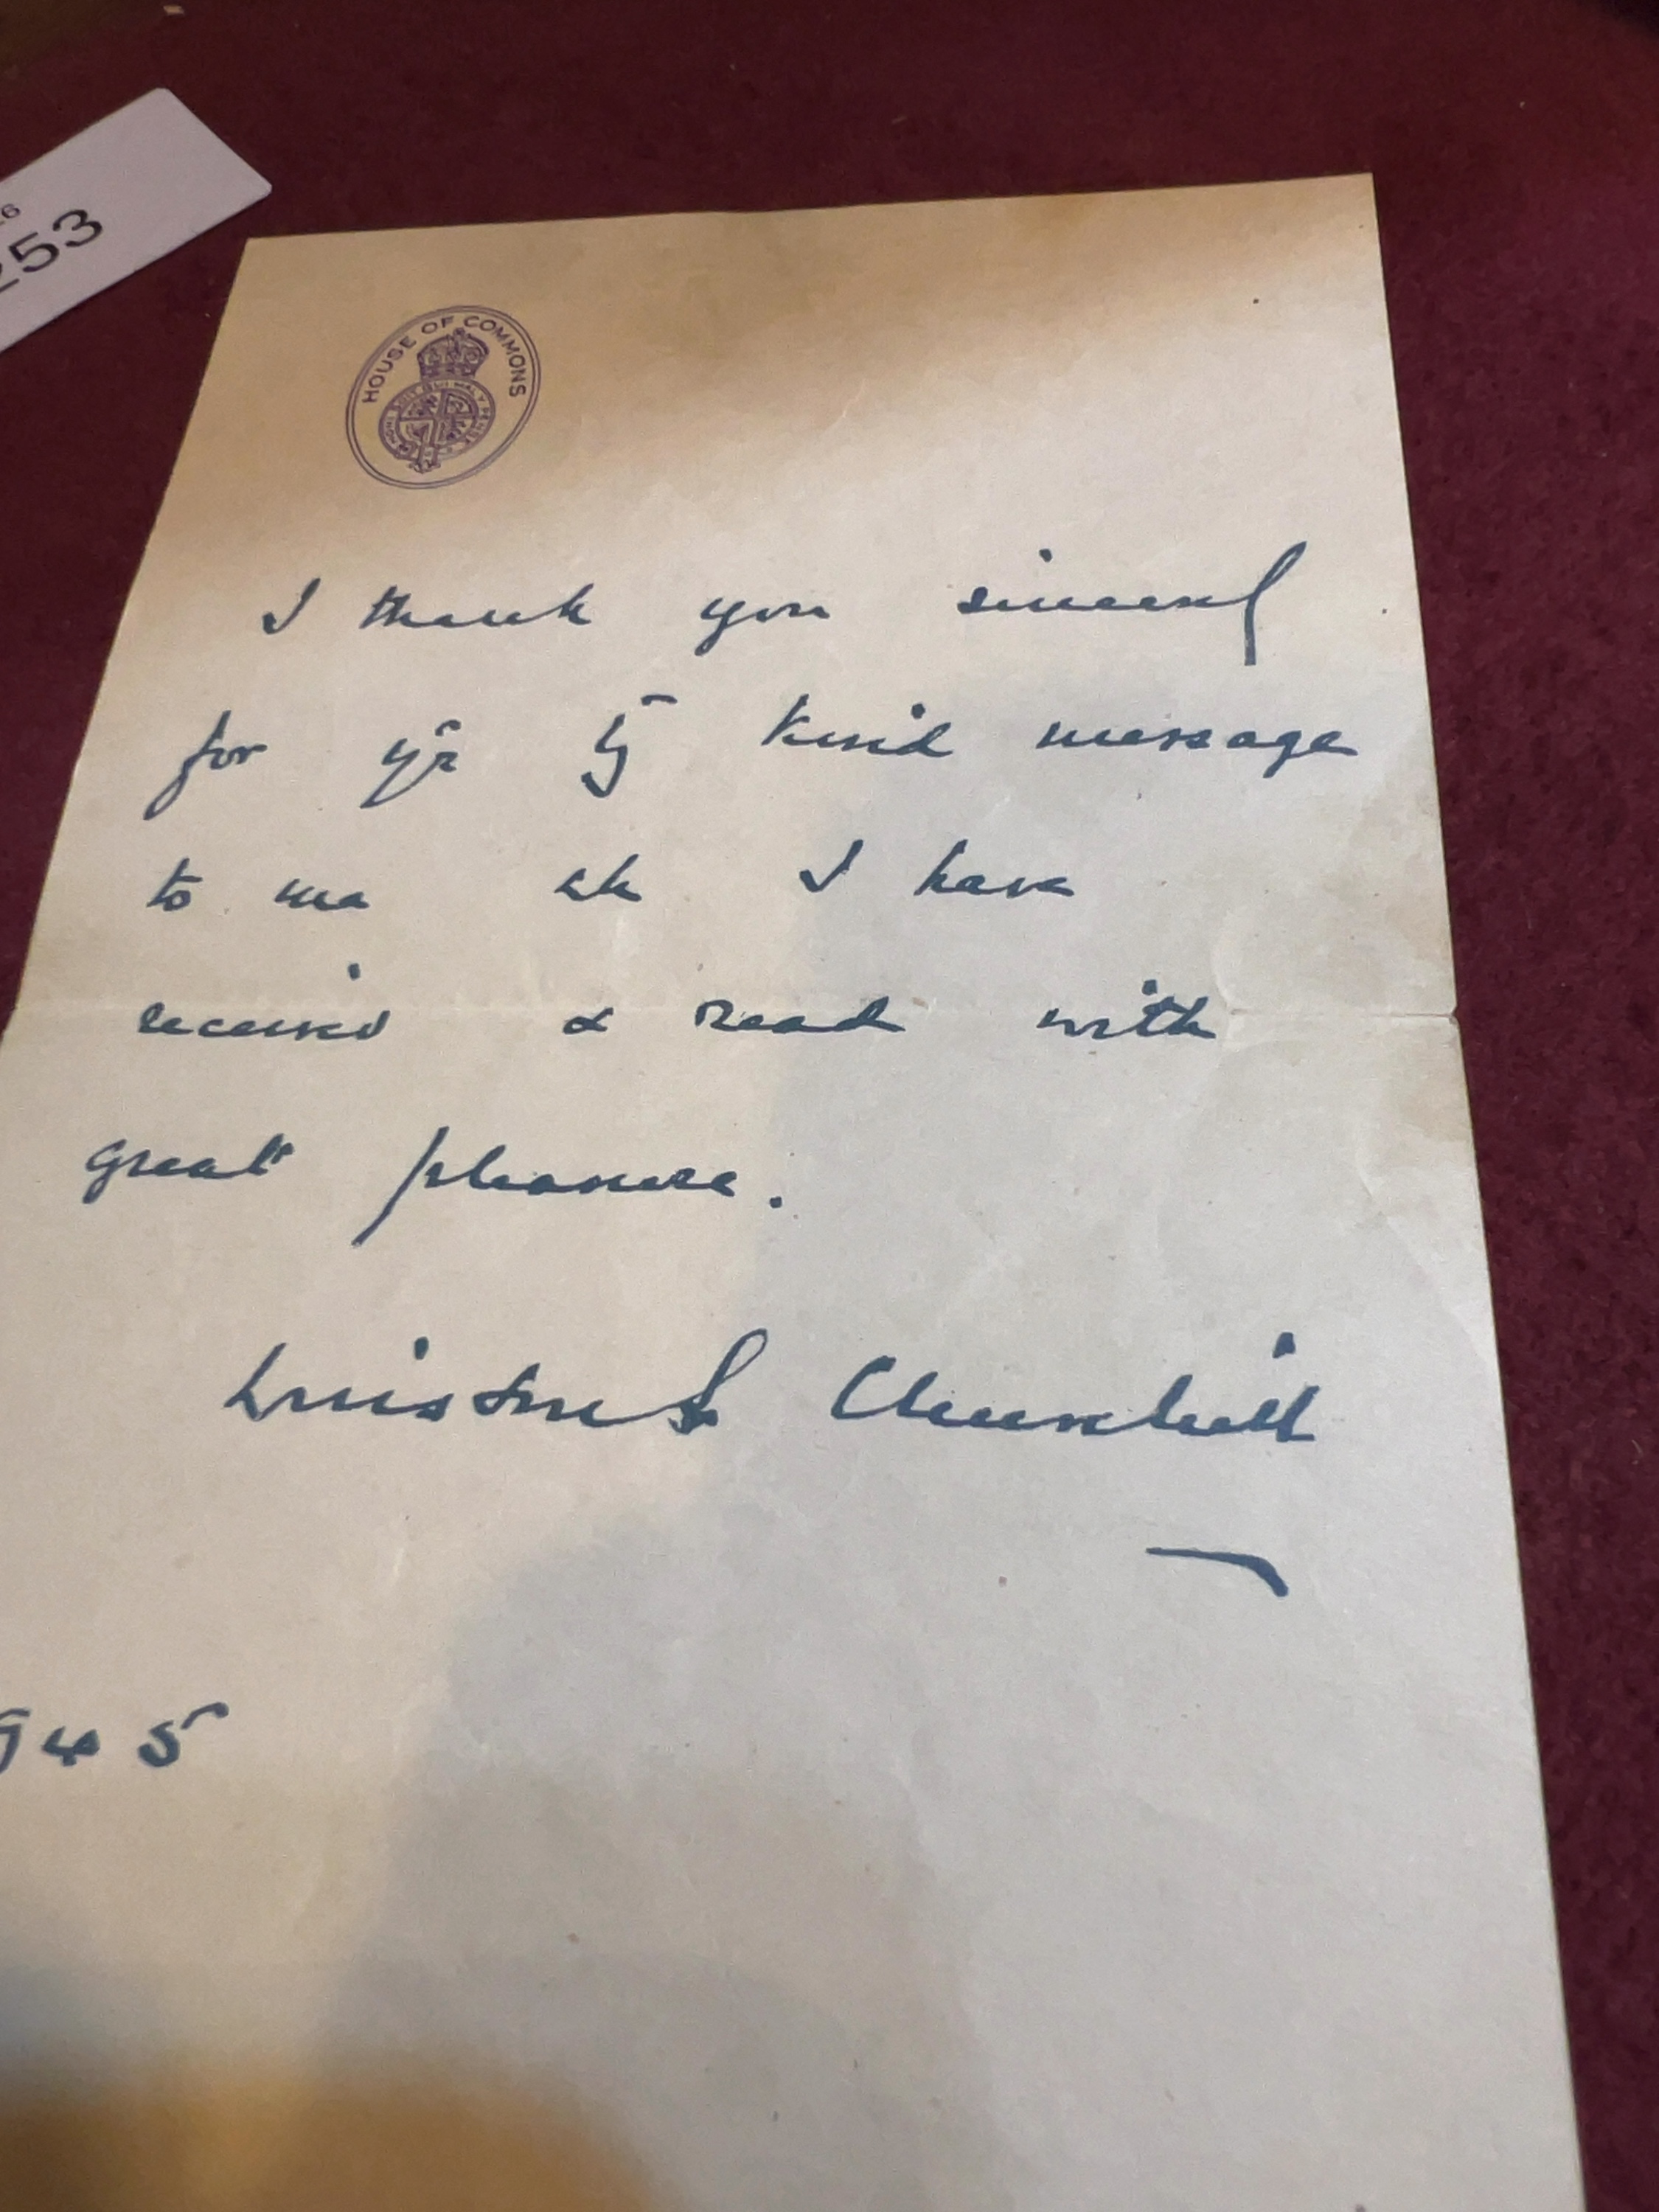 26
253
HOUSE OF COMMONS
HONI SOIT QUI MAL Y PENSE
I thank you sincerely
for yr vy kind message
to me wh I have
received & read with
great pleasure.
Winston S. Churchill
945